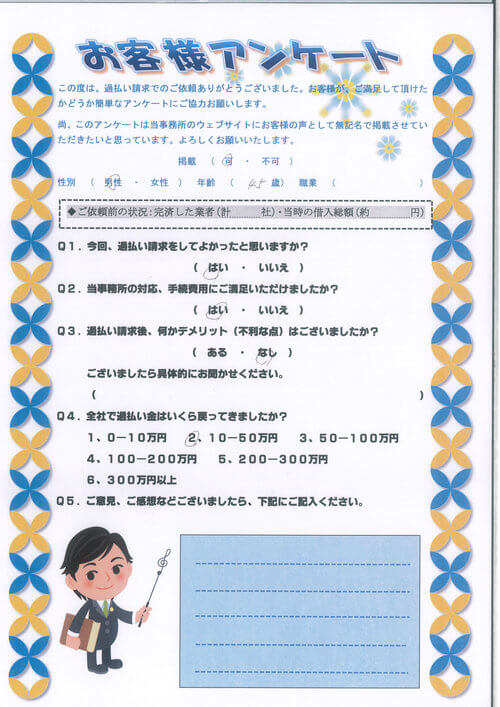 お客様アンケート
この度は、過払い請求でのご依頼ありがとうございました。お客様が、ご満足して頂けた
かどうか簡単なアンケートにご協力お願いします。
尚、このアンケートは当事務所のウェブサイトにお客様の声として無記名で掲載させてい
ただきたいと思っています。よろしくお願いいたします。
掲載 ( 可 ・ 不可 )
性別 ( 男性 ・ 女性 ) 年齢 ( 45 歳) 職業 ( )
◆ご依頼前の状況:完済した業者(計 社)・当時の借入総額(約 円)
Q1. 今回、過払い請求をしてよかったと思いますか?
( はい ・ いいえ )
Q2. 当事務所の対応、手続費用にご満足いただけましたか?
( はい ・ いいえ )
Q3. 過払い請求後、何かデメリット(不利な点)はございましたか?
( ある ・ なし )
ございましたら具体的にお聞かせください。
( )
Q4. 全社で過払い金はいくら戻ってきましたか?
1、0-10万円 2、10-50万円 3、50-100万円
4、100-200万円 5、200-300万円
6、300万円以上
Q5. ご意見、ご感想などございましたら、下記にご記入ください。